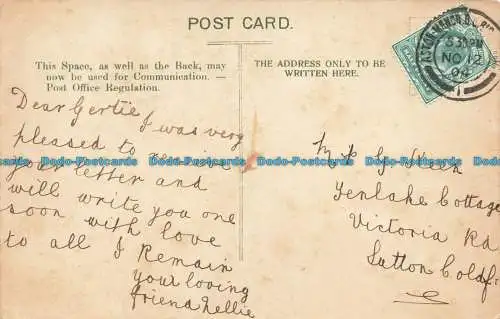 POST CARD.
This Space, as well as the Back, may
now be used for Communication. —
Post Office Regulation.
THE ADDRESS ONLY TO BE
WRITTEN HERE.
Dear Gertie I was very
pleased to receive
your letter and
will write you one
soon with love
to all I Remain
your loving
friend Nellie
Victoria Rd
Sutton Coldf
ASTON MANOR
NO 12
04
Dodo-Postcards Dodo-Postcards Dodo-Postcards Dodo-Postcards